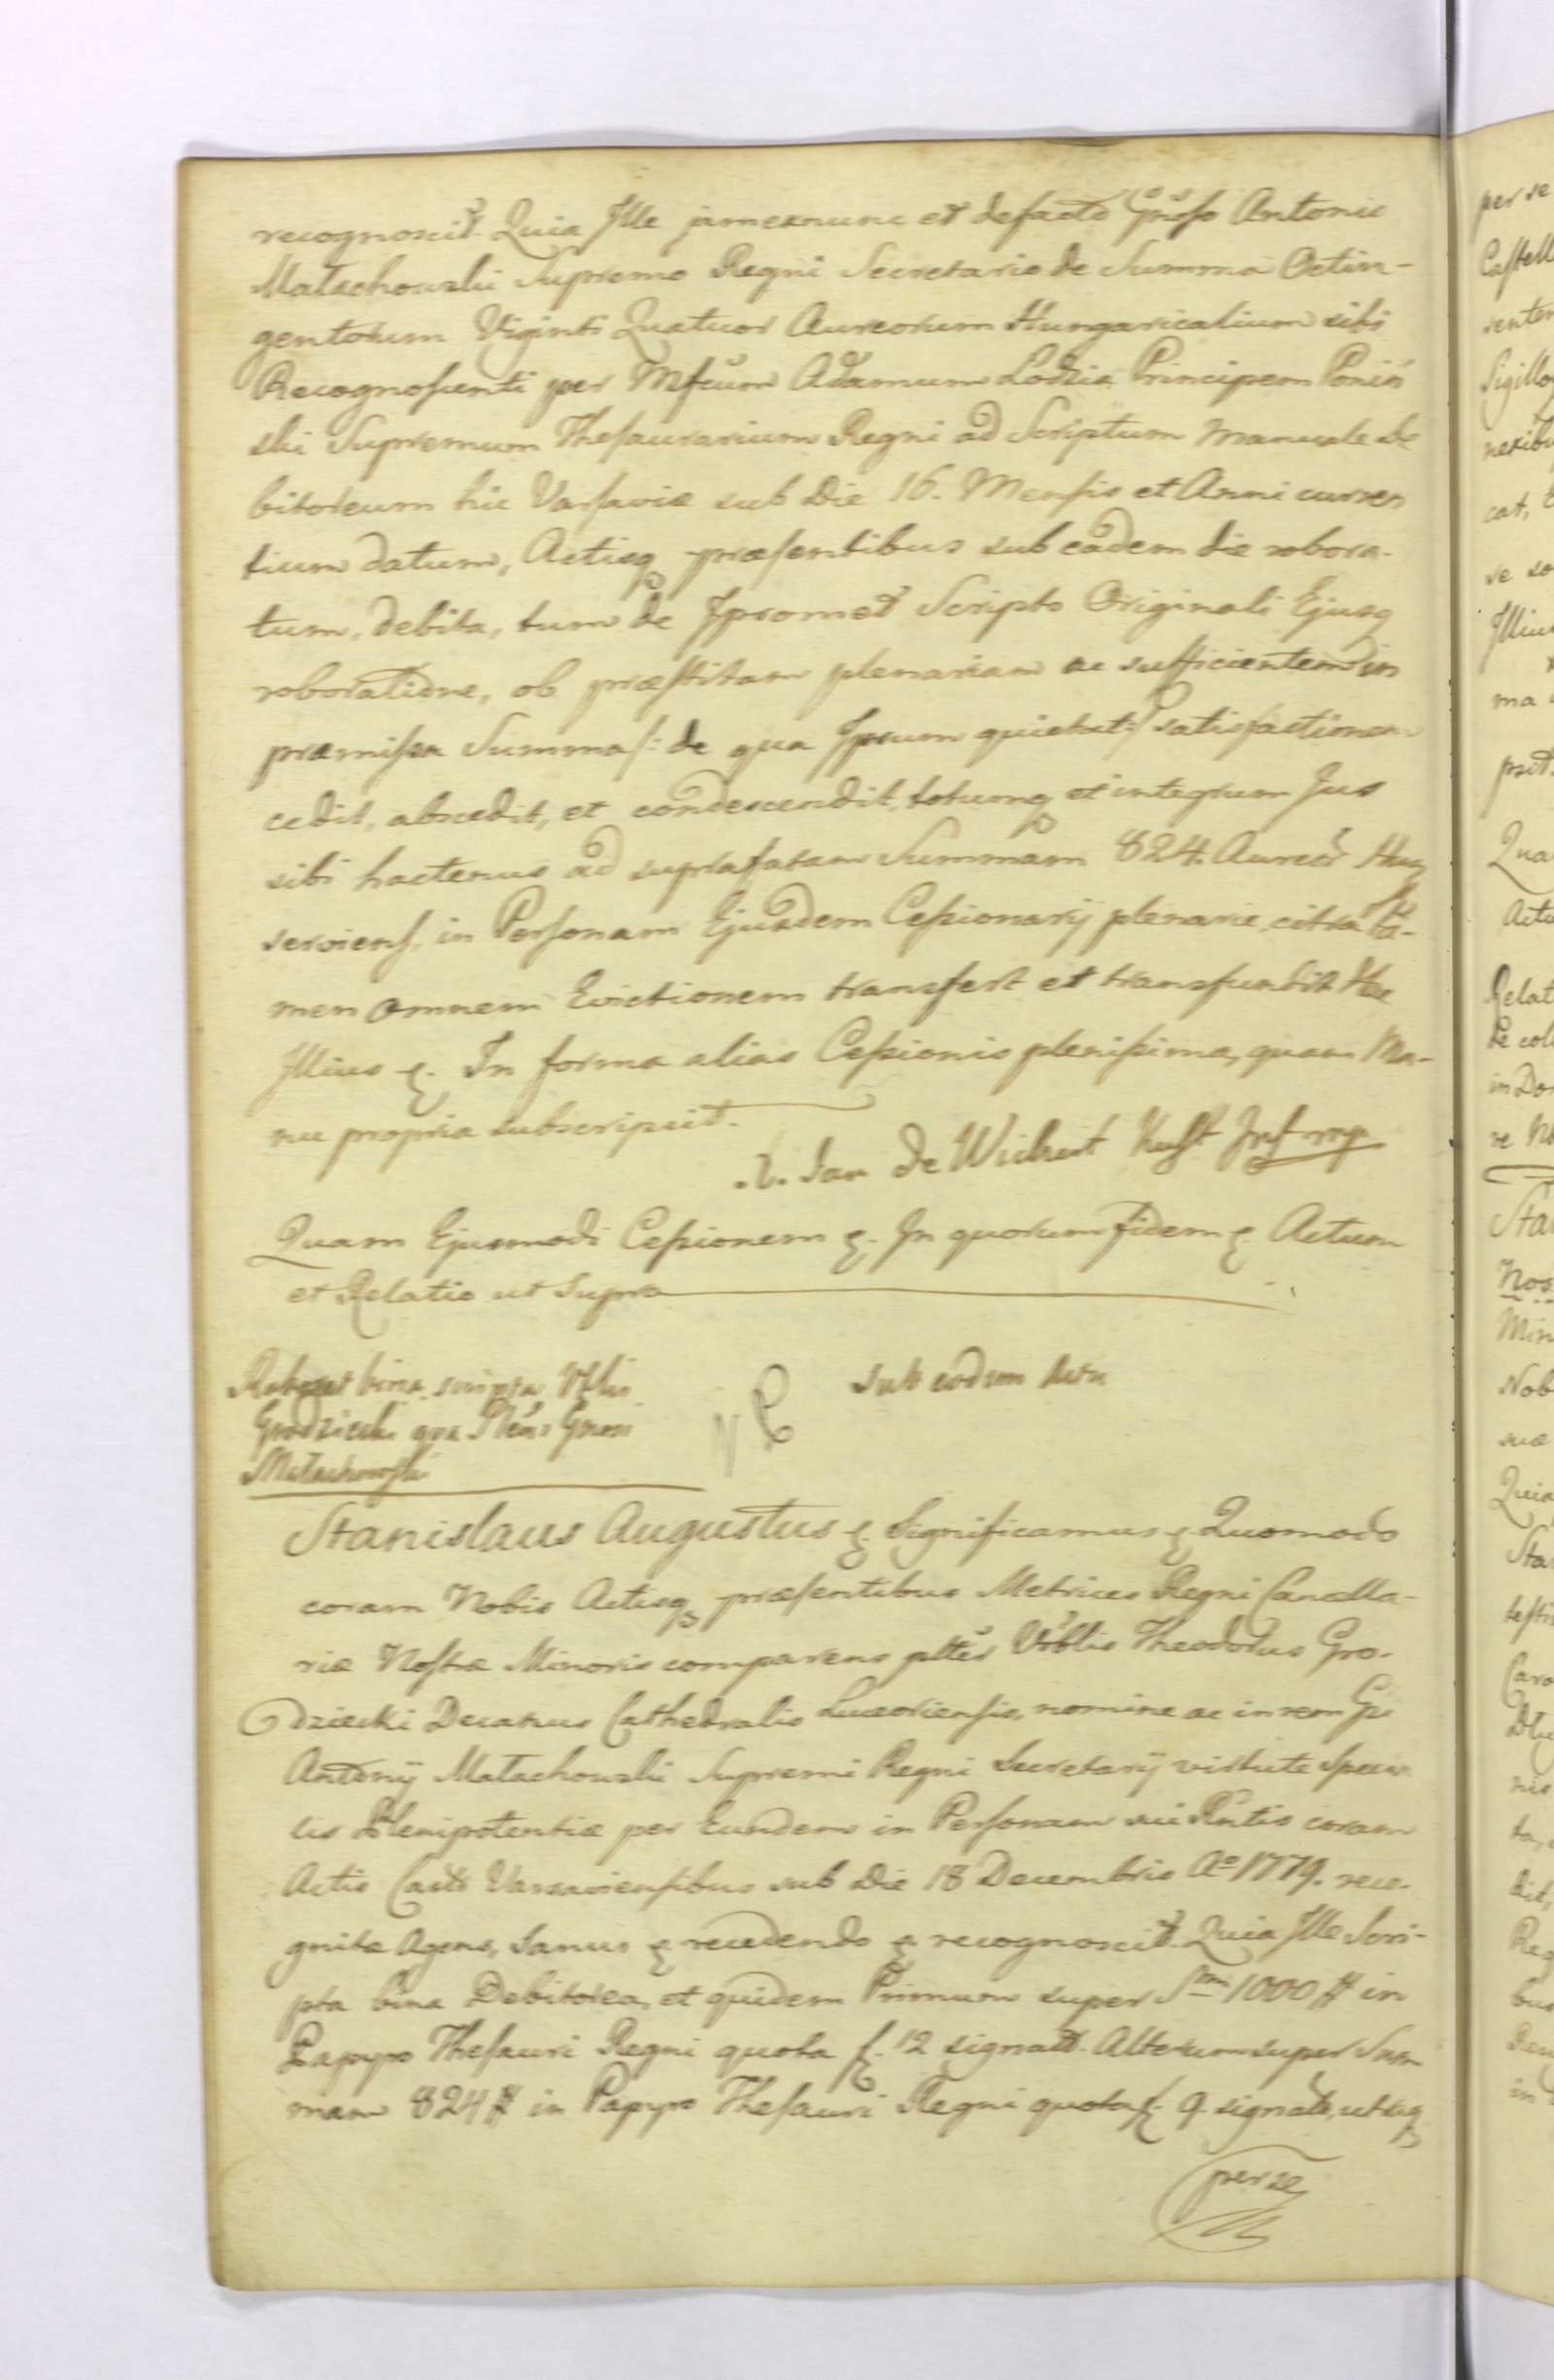 recognoscit. Quia Ille jam ex nunc et defacto Gnoso Antonio
Małachowski Supremo Regni Secretario de Summa Octin-
gentorum Viginti Quatuor Aureorum Hungaricalium sibi
Recognoscenti per Mfcum Adamum Lodzia Principem Poniń
ski Supremum Thesaurarium Regni ad Scriptum Manuale de
bitoreum hic Varsaviæ sub Die 16. Mensis et Anni curren
tium datum, Actisq præsentibus sub eadem die robora-
tum, debita, tum de Ipsomet Scripto Originali Ejusq
roboratione, ob præstitam plenariam ac sufficientem in
præmissa Summa /: de qua Ipsum quietat :/ satisfactionem
cedit, abscedit, et condescendit, totumq et integrum Jus
sibi hactenus ad suprafatam Summam 824. Aureor Hung
serviens, in Personam Ejusdem Cessionarij plenarie, citra ta-
men omnem Evictionem transfert et transfundit
Illius &. In forma alias Cessionis plenissima, quam Ma-
nu propria subscripsit.
Jan de Wichert mp
Quam Ejusmodi Cessionem &. In quorum fidem &. Actum
et Relatio ut Supra
Roborat bina scripta Vblis
Grodzicki qua Plens Gnosi
Małachowski
Sub eodem Actu
Stanislaus Augustus &. Significamus & Quomodo
coram Nobis Actisq præsentibus Metrices Regni Cancella-
riæ Nostræ Minoris comparens pltes Vrblis Theodorus Gro-
dziecki Decanus Cathedralis Luceoriensis, nomine ac in rem Gsi
Antonij Małachowski Supremi Regni Secretarij virtute specia
lis Plenipotentiæ per Eundem in Personam sui Rntis coram
Actis Castr Varsaviensibus sub Die 18 Decembris Ao 1779. reco-
gnitæ Agens, Sanus & recedendo & recognoscit. Quia Ille Scri-
pta bina Debitorea, et quidem Primum super Sm 1000 # in
Papyro Thesauri Regni quota f. 12 signatt. Alterum super Sum
mam 824 # in Papyro Thesauri Regni quota f. 9. signato, utrq
per se
per se
Castell
Sigillo
cat,
se so
Illiu
ma
Qua
Actu
Relat
in Do
Sta
Nos
Min
Nob
suæ
Quia
Sta
testi
Caro
nis
ta,
dit,
Reg
bus
in